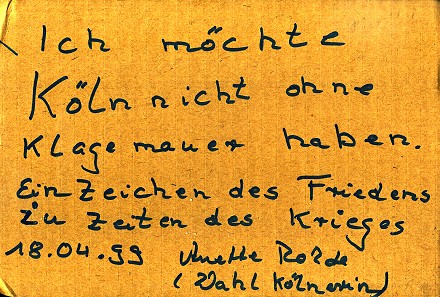 Ich möchte
Köln nicht ohne
Klagemauer haben.
Ein Zeichen des Friedens
zu Zeiten des Krieges
18.04.99 Anette
(Wahl Kölnerin)